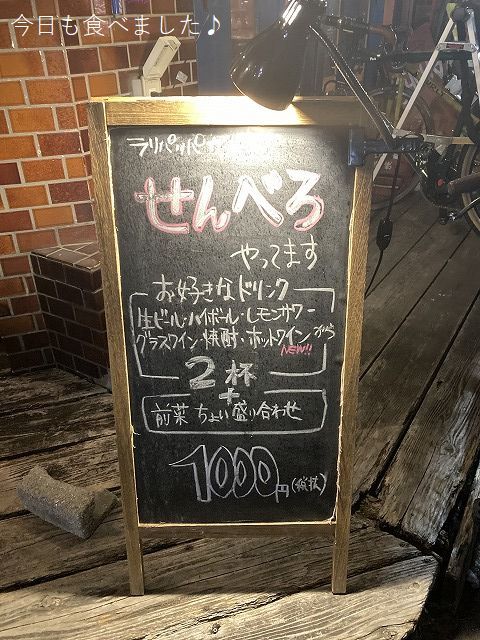 今日も食べました♪
ラリパッパ
せんべろ
やってます
お好きなドリンク
生ビール・ハイボール・レモンサワー
グラスワイン・焼酎・ホットワインから
NEW!!
2杯
+
前菜ちょい盛り合わせ
1000円(税抜)